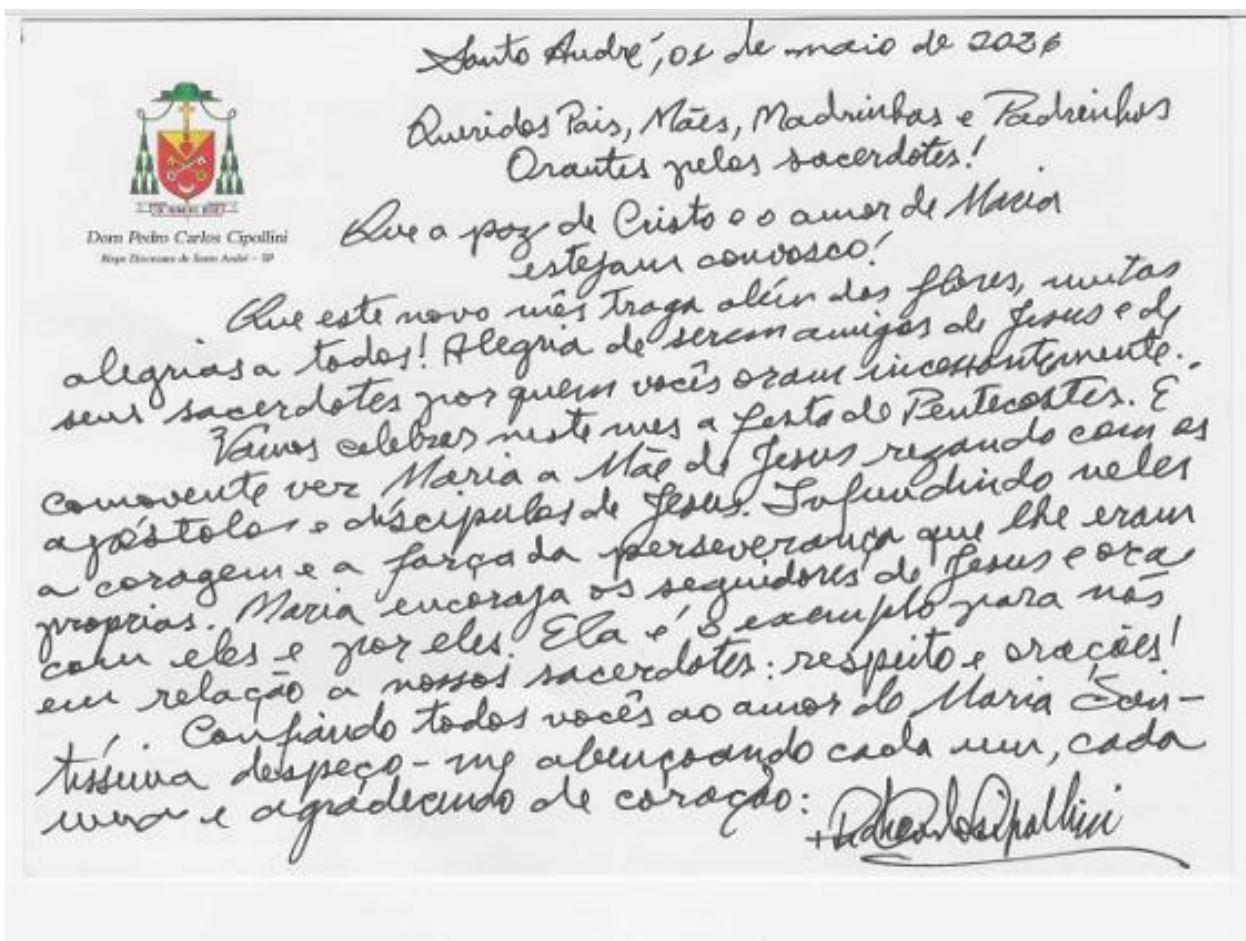 Santo André, 01 de maio de 2026
Queridos Pais, Mães, Madrinhas e Padrinhos
Orantes pelos sacerdotes!
Que a paz de Cristo e o amor de Maria
estejam convosco!
Dom Pedro Carlos Cipollini
Bispo Diocesano de Santo André - SP
Que este novo mês traga além das flores, muitas
alegrias a todos! Alegria de serem amigos de Jesus e de
seus sacerdotes por quem vocês oram incessantemente.
Vamos celebrar neste mes a festa de Pentecostes. É
comovente ver Maria a Mãe de Jesus rezando com os
apóstolos e discípulos de Jesus. Infundindo neles
a coragem e a força da perseverança que lhe eram
proprias. Maria encoraja os seguidores de Jesus e ora
com eles e por eles. Ela é o exemplo para nós
em relação a nossos sacerdotes: respeito e orações!
Confiando todos vocês ao amor de Maria San-
tíssima despeço-me abençoando cada um, cada
uma e agradecendo de coração:
+ Pedro Carlos Cipollini